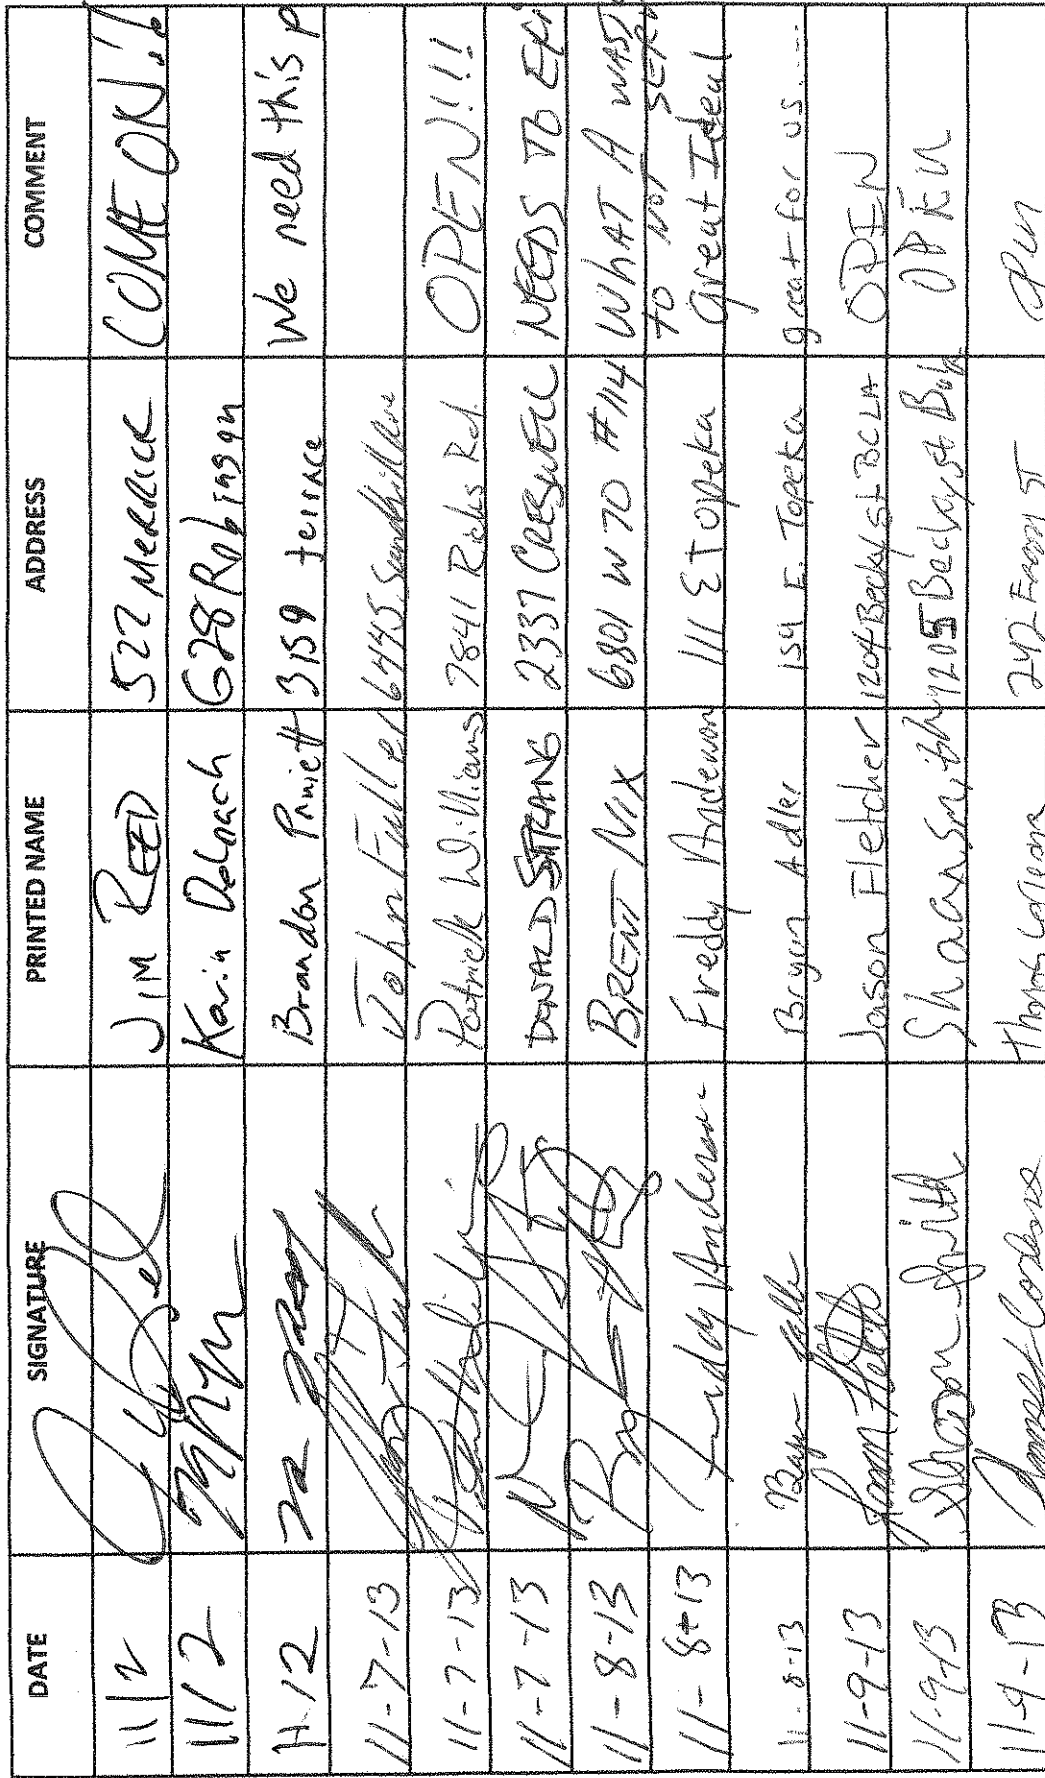 DATE SIGNATURE PRINTED NAME ADDRESS COMMENT
11/2 JIM REED 522 MERRICK COME ON!!
11/2 Karin Deloach 628 Robinson
11-12 Brandon Pruiett 3159 terrace We need this p
11-7-13 John Fuller 6445
11-7-13 Patrick Williams 7841 Rd. OPEN!!!
11-7-13 DONALD STRANG 2337 CRESWELL NEEDS TO
11-8-13 BRENT NIX 6801 W 70 #114 WHAT A WAST
TO NOT
11-8-13 Freddy Anderson Freddy Anderson 111 E Topeka Great Ideal
11-8-13 Bryan Adler 159 E. Topeka great for us....
11-9-13 Jason Fletcher 1204 Becky St BCLA OPEN
11-9-13 Sharon Smith Shaan Smith 1205 Becky st OPEN
11-9-13 Thomas 242 ST open